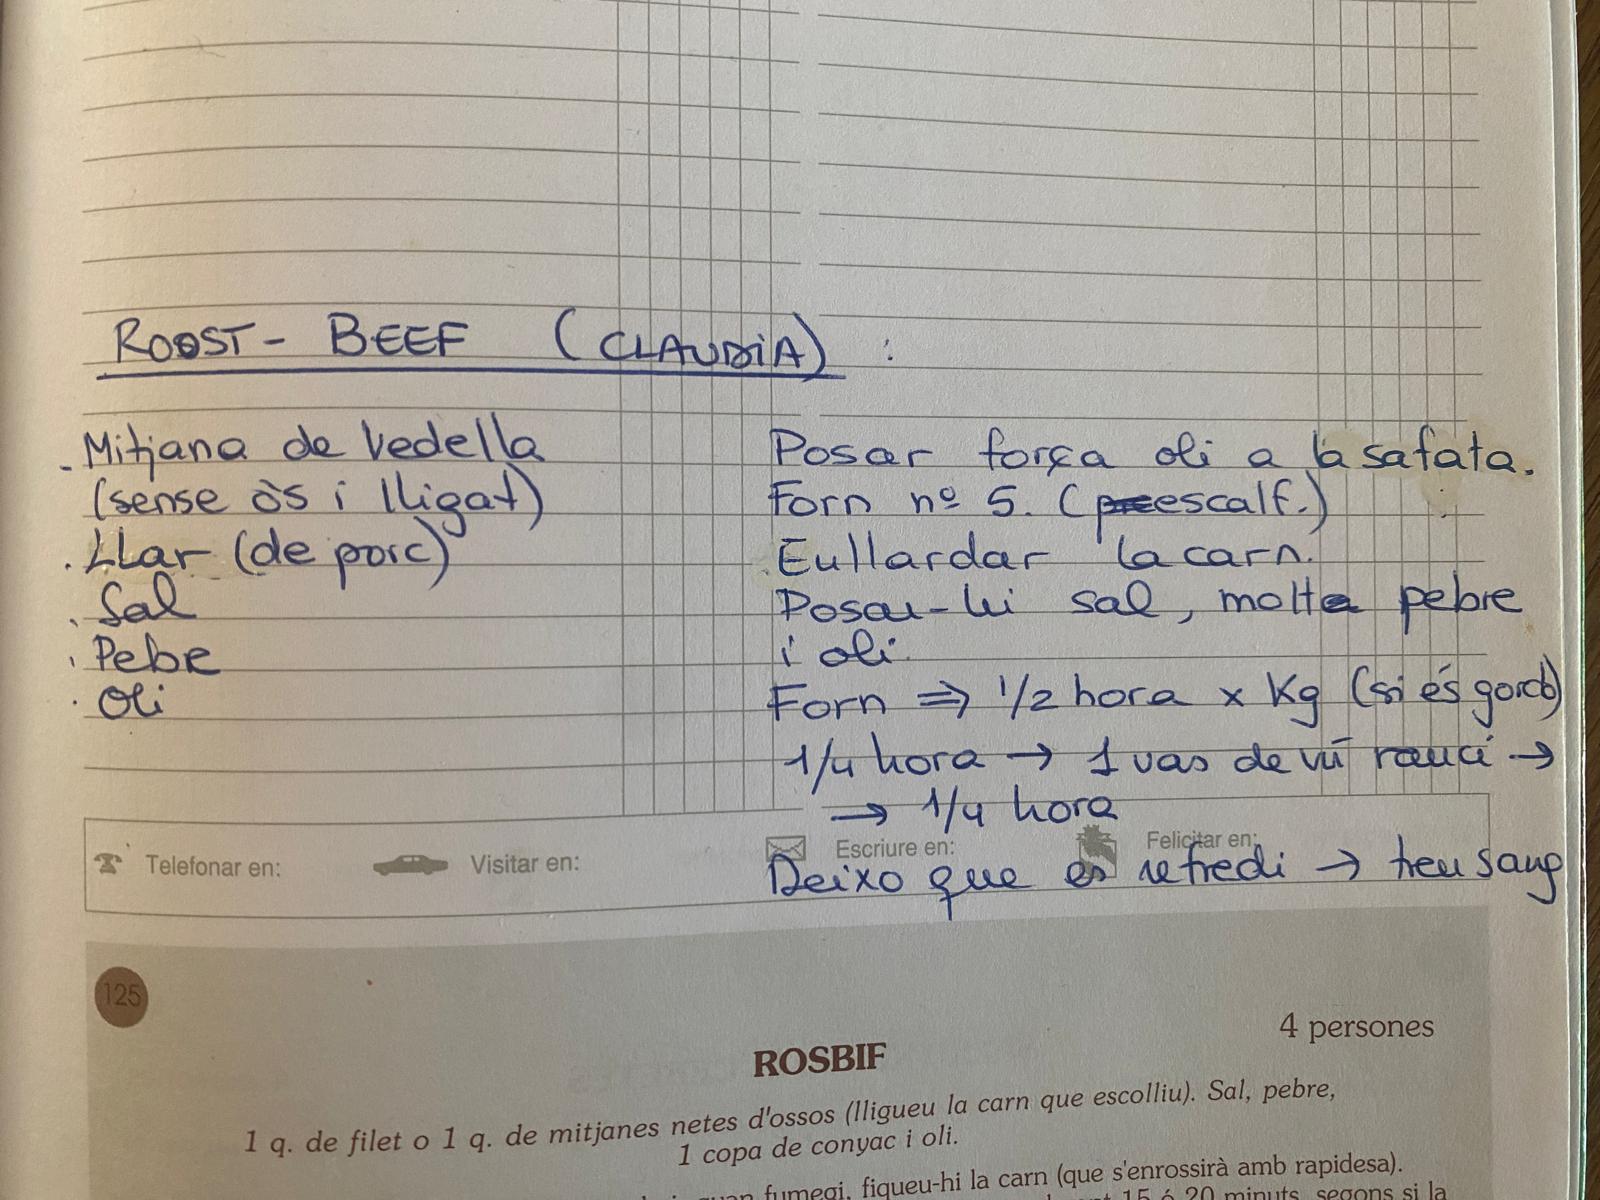 ROOST-BEEF (CLAUDIA) :
- Mitjana de Vedella
(sense òs i lligat)
. Llar (de porc)
. Sal
. Pebe
. Oli
Posar força oli a la safata.
Forn nº 5. (preescalf.)
Enllardar la carn.
Posar-li sal, molta pebre
i oli.
Forn ⇒ 1/2 hora x Kg (si és gordo)
1/4 hora → 1 vas de vi ranci →
→ 1/4 hora
Deixo que es refredi → treu sang
Telefonar en: Visitar en: Escriure en: Felicitar en:
125
4 persones
ROSBIF
1 q. de filet o 1 q. de mitjanes netes d'ossos (lligueu la carn que escolliu). Sal, pebre,
1 copa de conyac i oli.
fumegi, fiqueu-hi la carn (que s'enrossirà amb rapidesa).
15 ó 20 minuts, segons si la